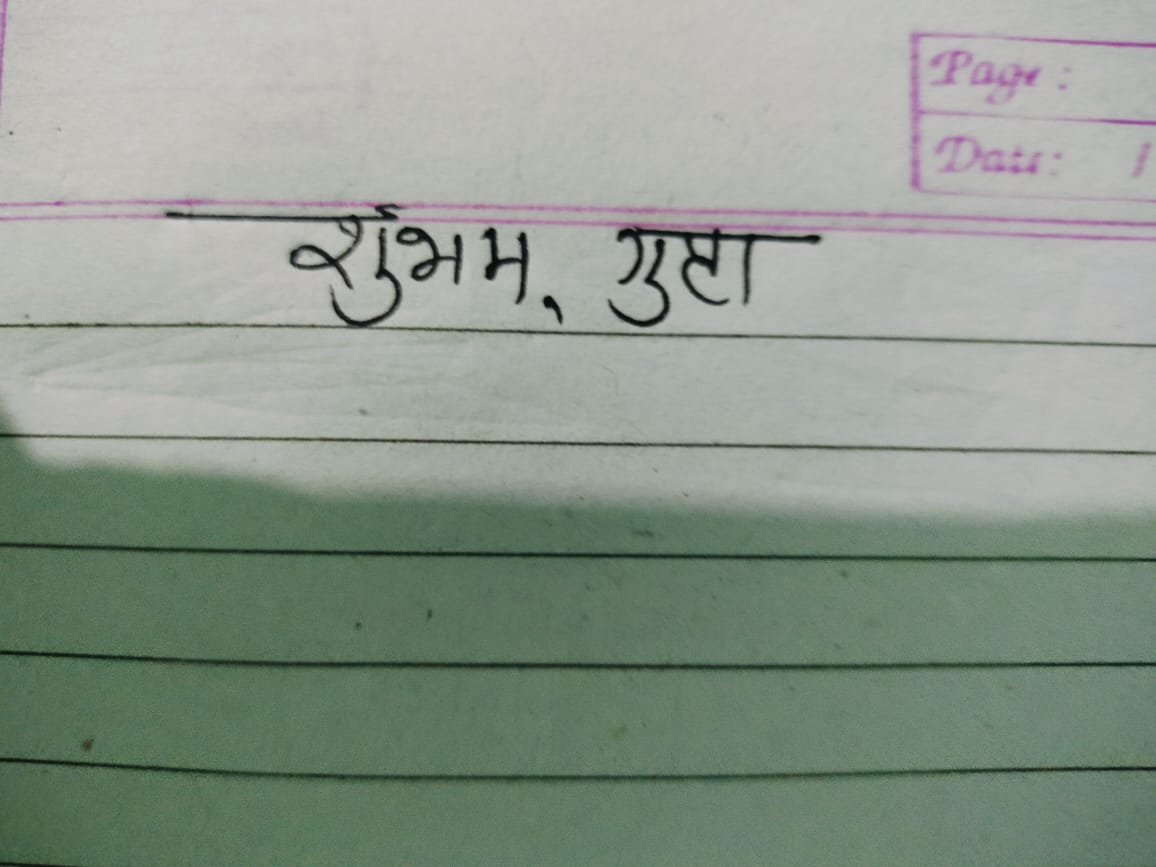 Page :
Date: /
शुभम, गुप्ता